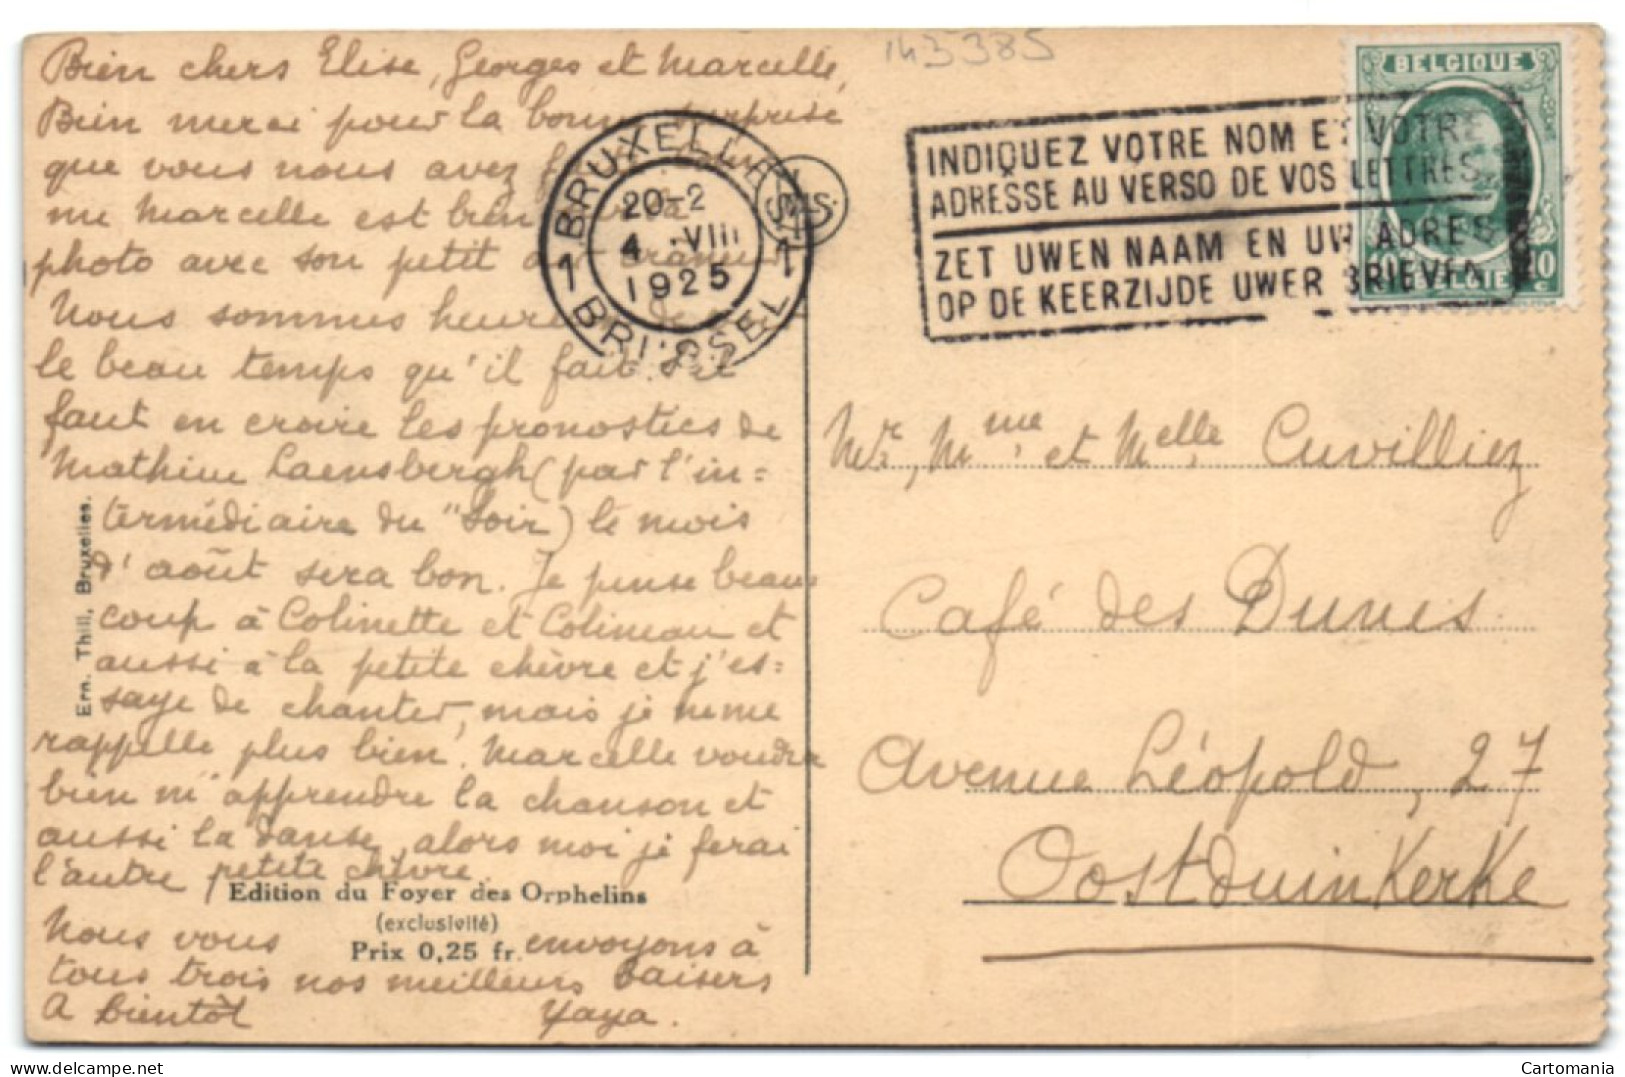 143385
Bien chers Elise, Georges et Marcelle,
Bien merci pour la bonne surprise
que vous nous avez
me Marcelle est bien sur la
photo avec son petit air
Nous sommes heureux de
le beau temps qu'il fait. S'il
faut en croire les pronostics de
Mathieu Laensbergh (par l'in=
termédiaire du "Soir") le mois
d'août sera bon. Je pense beau
coup à Colinette et Colineau et
aussi à la petite chèvre et j'es=
saye de chanter, mais je ne me
rappelle plus bien. Marcelle voudra
bien m'apprendre la chanson et
aussi la danse, alors moi je ferai
l'autre petite chèvre.
Nous vous envoyons à
tous trois nos meilleurs baisers
A bientôt Yaya.
Ern. Thill, Bruxelles.
Edition du Foyer des Orphelins
(exclusivité)
Prix 0,25 fr.
BRUXELLES
1 1
20-2
4 VIII
1925
BRUSSEL
INDIQUEZ VOTRE NOM ET VOTRE
ADRESSE AU VERSO DE VOS LETTRES.
ZET UWEN NAAM EN UW ADRES
OP DE KEERZIJDE UWER BRIEVEN
BELGIQUE
10 BELGIË 10
c c
Mr, Mme et Melle Cuvilliez
Café des Dunes
Avenue Léopold, 27
Oostduinkerke
Cartomania